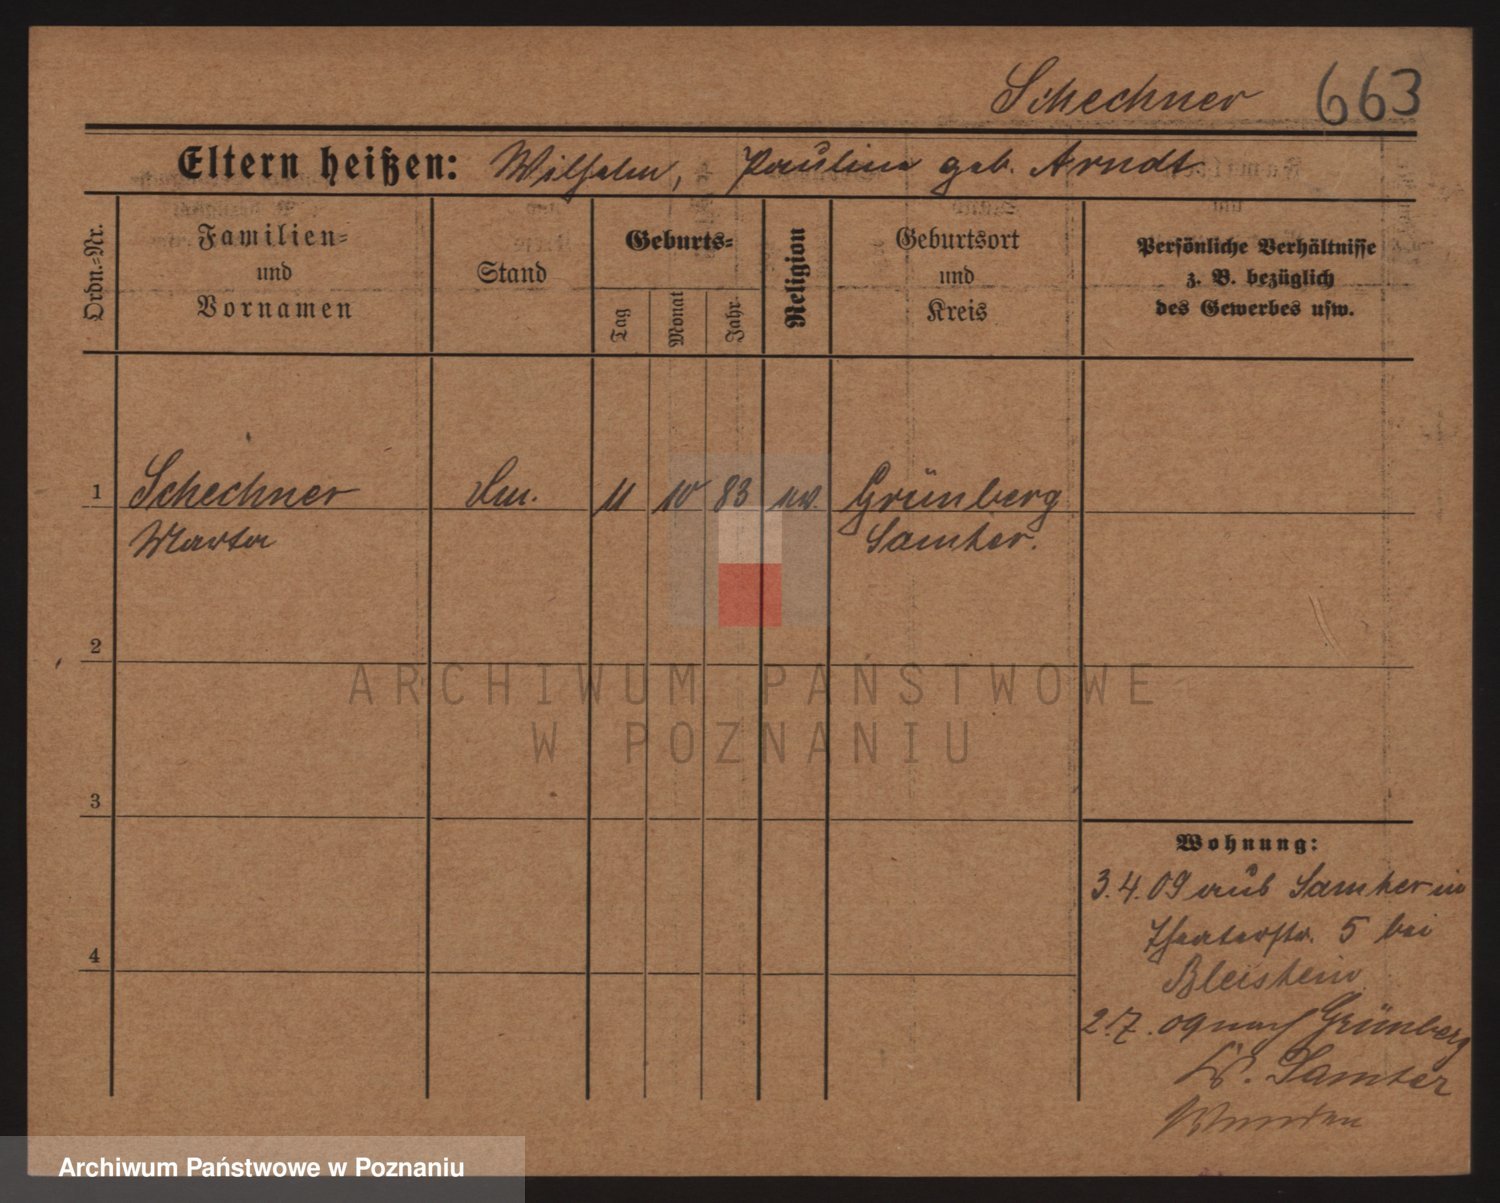 Schechner 663
Eltern heißen: Wilhelm, Pauline geb. Arndt
Ordn.=Nr.
Familien=
und
Vornamen
Stand
Geburts=
Tag
Monat
Jahr
Religion
Geburtsort
und
Kreis
Persönliche Verhältnisse
z. B. bezüglich
des Gewerbes usw.
1 Schechner 11 10 83 Grünberg
Marta Samter.
2
ARCHIWUM PAŃSTWOWE
W POZNANIU
3
Wohnung:
3.4.09 aus Samter in
Theaterstr. 5 bei
Bleistein
4
2.7.09 nach Grünberg
Kr. Samter
Archiwum Państwowe w Poznaniu